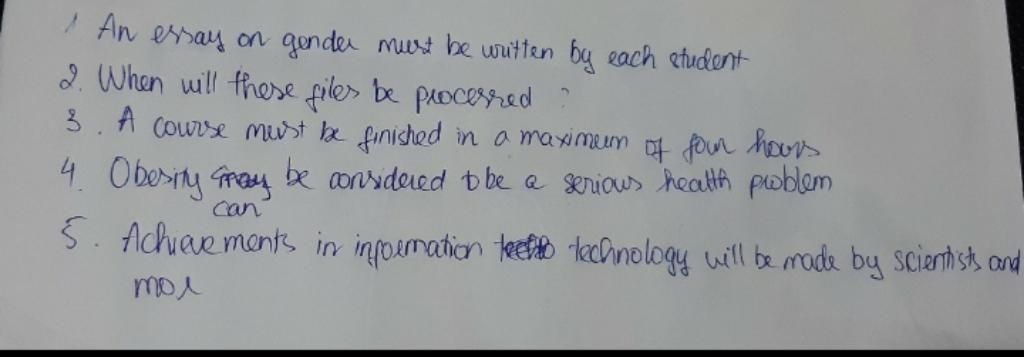 1 An essay on gender must be written by each student
2. When will these files be processed ?
3. A course must be finished in a maximum of four hours
4. Obesity may be considered to be a serious health problem
can
5. Achievements in information technology will be made by scientists and